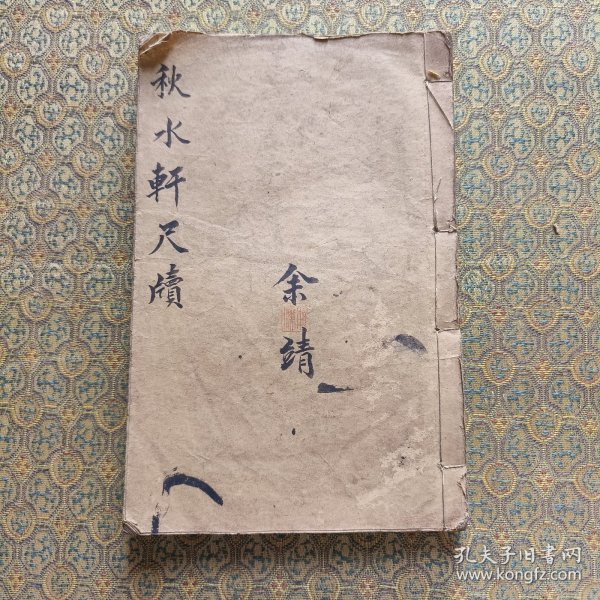 秋水軒尺牘
余靖
孔夫子旧书网
www.kongfz.com